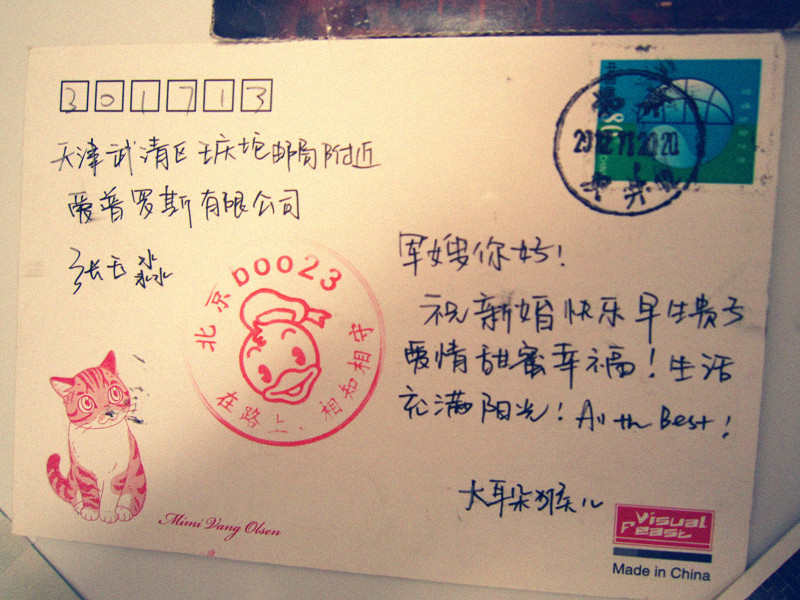 301713
天津武清区王庆坨邮局附近
爱普罗斯有限公司
张玉淼
北京boo23
在路上，相知相守
80
北京
2012.11.20.20
军嫂你好！
祝新婚快乐早生贵子
爱情甜蜜幸福！生活
充满阳光！All the Best！
大耳朵猴儿
Mimi Vang Olsen
Visual
Feast
Made in China